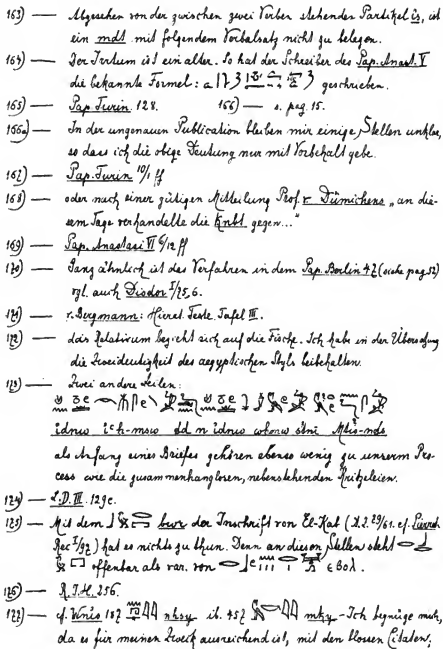 163) — Abgesehen von der zwischen zwei Verben stehenden Partikel is, ist
ein mdt mit folgendem Verbalsatz nicht zu belegen.
164) — Der Irrtum ist ein alter. So hat der Schreiber des Pap. Anast. V
die bekannte Formel: geschrieben.
165) — Pap. Turin 128. 166) — s. pag. 15.
166a) — In der ungenauen Publication bleiben mir einige Stellen unklar,
so dass ich die obige Deutung nur mit Vorbehalt gebe.
167) — Pap. Turin 10/1 ff
168) — oder nach einer gütigen Mitteilung Prof. Dümichens „an die-
sem Tage verhandelte die Knbt gegen..."
169) — Pap. Anastasi VI 6/12 ff
170) — Ganz ähnlich ist das Verfahren in dem Pap. Berlin 47 (siehe pag. 52)
vgl. auch Diodor I/75,6.
171) — v. Bergmann: Hierat. Texte Tafel III.
172) — das Relativum bezieht sich auf die Fische. Ich habe in der Übersetzung
die Zweideutigkeit des aegyptischen Styls beibehalten.
173) — Zwei andere Zeilen:
idnw
als Anfang eines Briefes gehören ebenso wenig zu unserem Pro-
cess wie die zusammenhanglosen, nebenstehenden Kritzeleien.
174) — L.D. III. 129c.
175) — Mit dem bwr der Inschrift von El-Kab (29/61. cf. Pierret
Rec I/92) hat es nichts zu thun. Denn an diesen Stellen steht
offenbar als var. von ⲉⲃⲟⲗ.
176) — R.I.H. 256.
177) — cf. Wnis 187 nhsy ib. 457 mky – Ich begnüge mich,
da es für meinen Zweck ausreichend ist, mit den blossen Citaten,